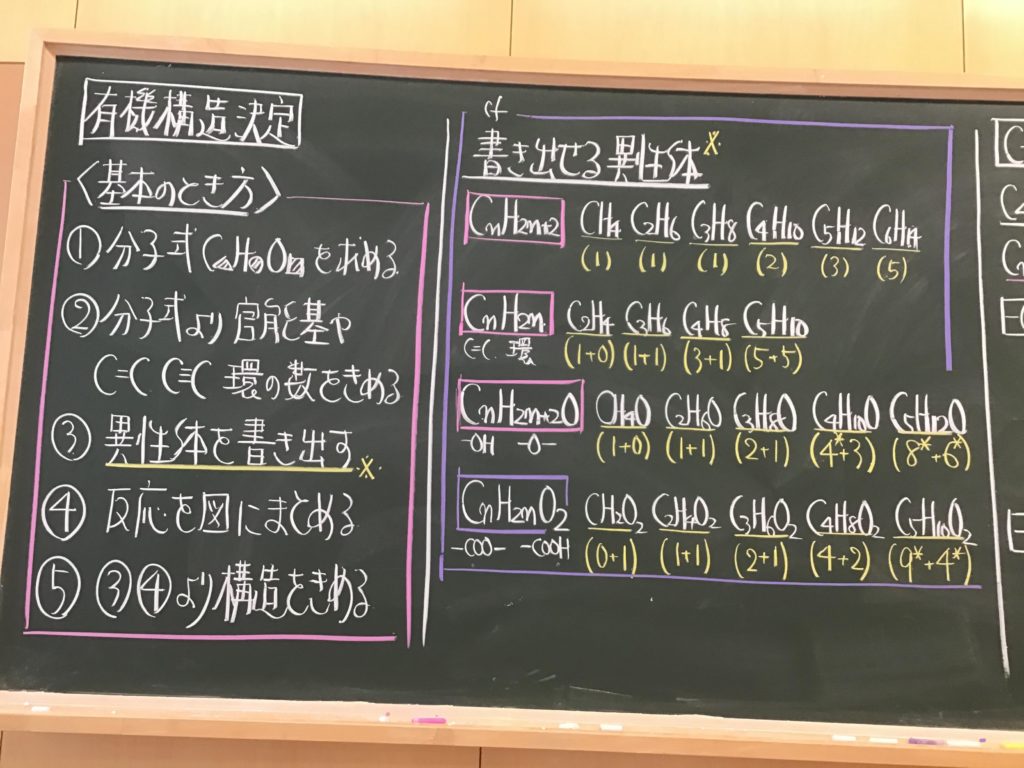 有機構造決定
〈基本のとき方〉
① 分子式 CnHmOl を求める
② 分子式より官能基や
C=C C≡C 環の数をきめる
③ 異性体を書き出す ※
④ 反応を図にまとめる
⑤ ③④より構造をきめる
cf
書き出せる異性体 ※
CnH2n+2 CH4 C2H6 C3H8 C4H10 C5H12 C6H14
(1) (1) (1) (2) (3) (5)
CnH2n C2H4 C3H6 C4H8 C5H10
C=C 環 (1+0) (1+1) (3+1) (5+5)
CnH2n+2O CH4O C2H6O C3H8O C4H10O C5H12O
-OH -O- (1+0) (1+1) (2+1) (4*+3) (8*+6*)
CnH2nO2 CH2O2 C2H4O2 C3H6O2 C4H8O2 C5H10O2
-COO- -COOH (0+1) (1+1) (2+1) (4+2) (9*+4*)